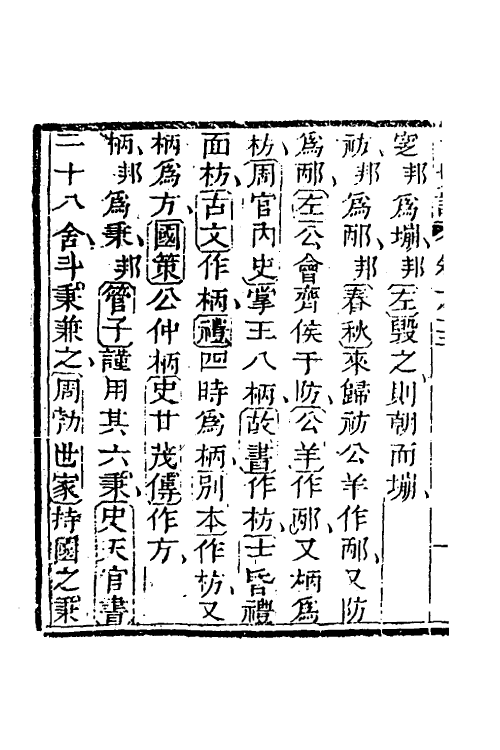 窆邦爲堋邦左毀之則朝而堋
祊邦爲邴邦春秋來歸祊公羊作邴又防
爲邴左公會齊侯于防公羊作邴又柄爲
枋周官內史掌王八柄故書作枋士昏禮
面枋古文作柄禮四時爲柄別本作枋又
柄爲方國策公仲柄史甘茂傳作方
柄邦爲秉邦管子謹用其六秉史天官書
二十八舍斗秉兼之周勃世家持國之秉